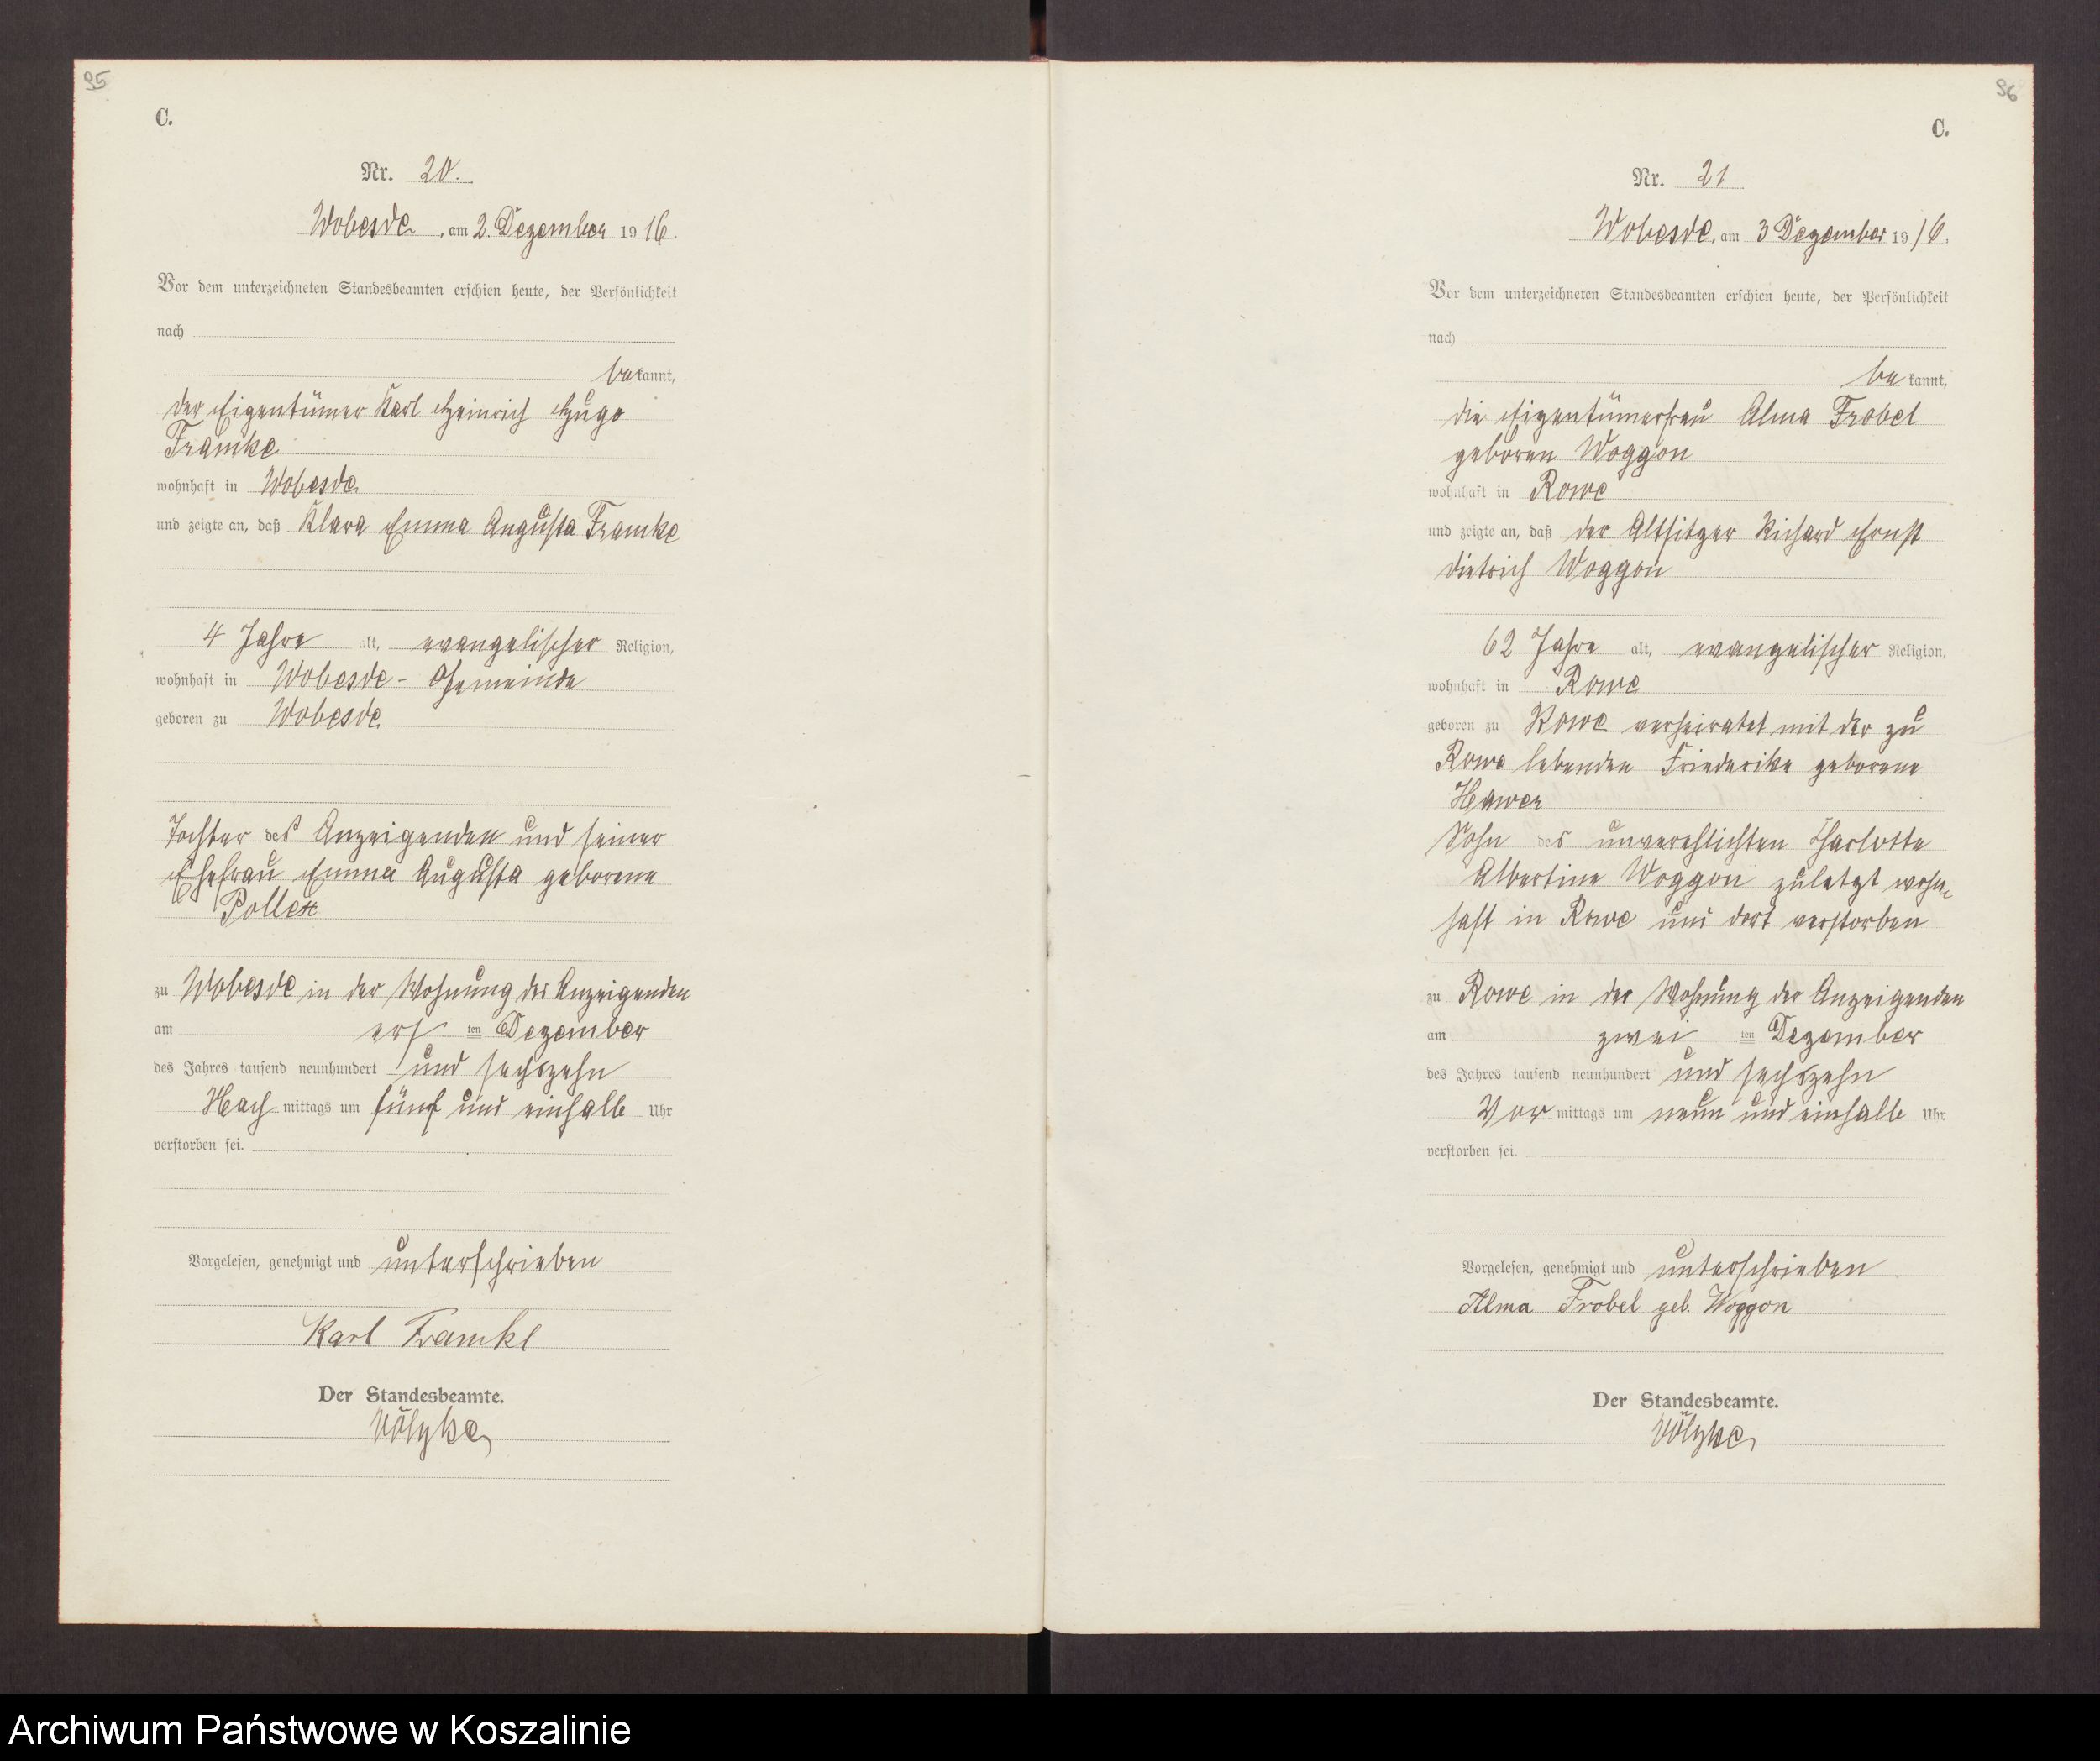 95
C.
Nr. 20.
Wobesde, am 2. Dezember 1916.
Vor dem unterzeichneten Standesbeamten erschien heute, der Persönlichkeit
nach
bekannt,
der Eigentümer Karl Heinrich Hugo
Framke
wohnhaft in Wobesde
und zeigte an, daß Klara Emma Augusta Framke
4 Jahre alt, evangelischer Religion,
wohnhaft in Wobesde - Gemeinde
geboren zu Wobesde
Tochter des Anzeigenden und seiner
Ehefrau Emma Augusta geborene
Pollex
zu Wobesde in der Wohnung des Anzeigenden
am ersten Dezember
des Jahres tausend neunhundert und sechszehn
Nachmittags um fünf und einhalb Uhr
verstorben sei.
Vorgelesen, genehmigt und unterschrieben
Karl Framke
Der Standesbeamte.
Völzke
96
C.
Nr. 21
Wobesde, am 3 Dezember 1916.
Vor dem unterzeichneten Standesbeamten erschien heute, der Persönlichkeit
nach
bekannt,
die Eigentümerfrau Alma Frobel
geboren Woggon
wohnhaft in Rowe
und zeigte an, daß der Altsitzer Richard Ernst
dietrich Woggon
62 Jahre alt, evangelischer Religion,
wohnhaft in Rowe
geboren zu Rowe verheiratet mit der zu
Rowe lebenden Friederike geborene
Sohn des unverehlichten Charlotte
Albertine Woggon zuletzt wohn-
haft in Rowe und dort verstorben
zu Rowe in der Wohnung der Anzeigenden
am zweiten Dezember
des Jahres tausend neunhundert und sechszehn
Vormittags um neun und einhalb Uhr
verstorben sei.
Vorgelesen, genehmigt und unterschrieben
Alma Frobel geb. Woggon
Der Standesbeamte.
Völzke
Archiwum Państwowe w Koszalinie